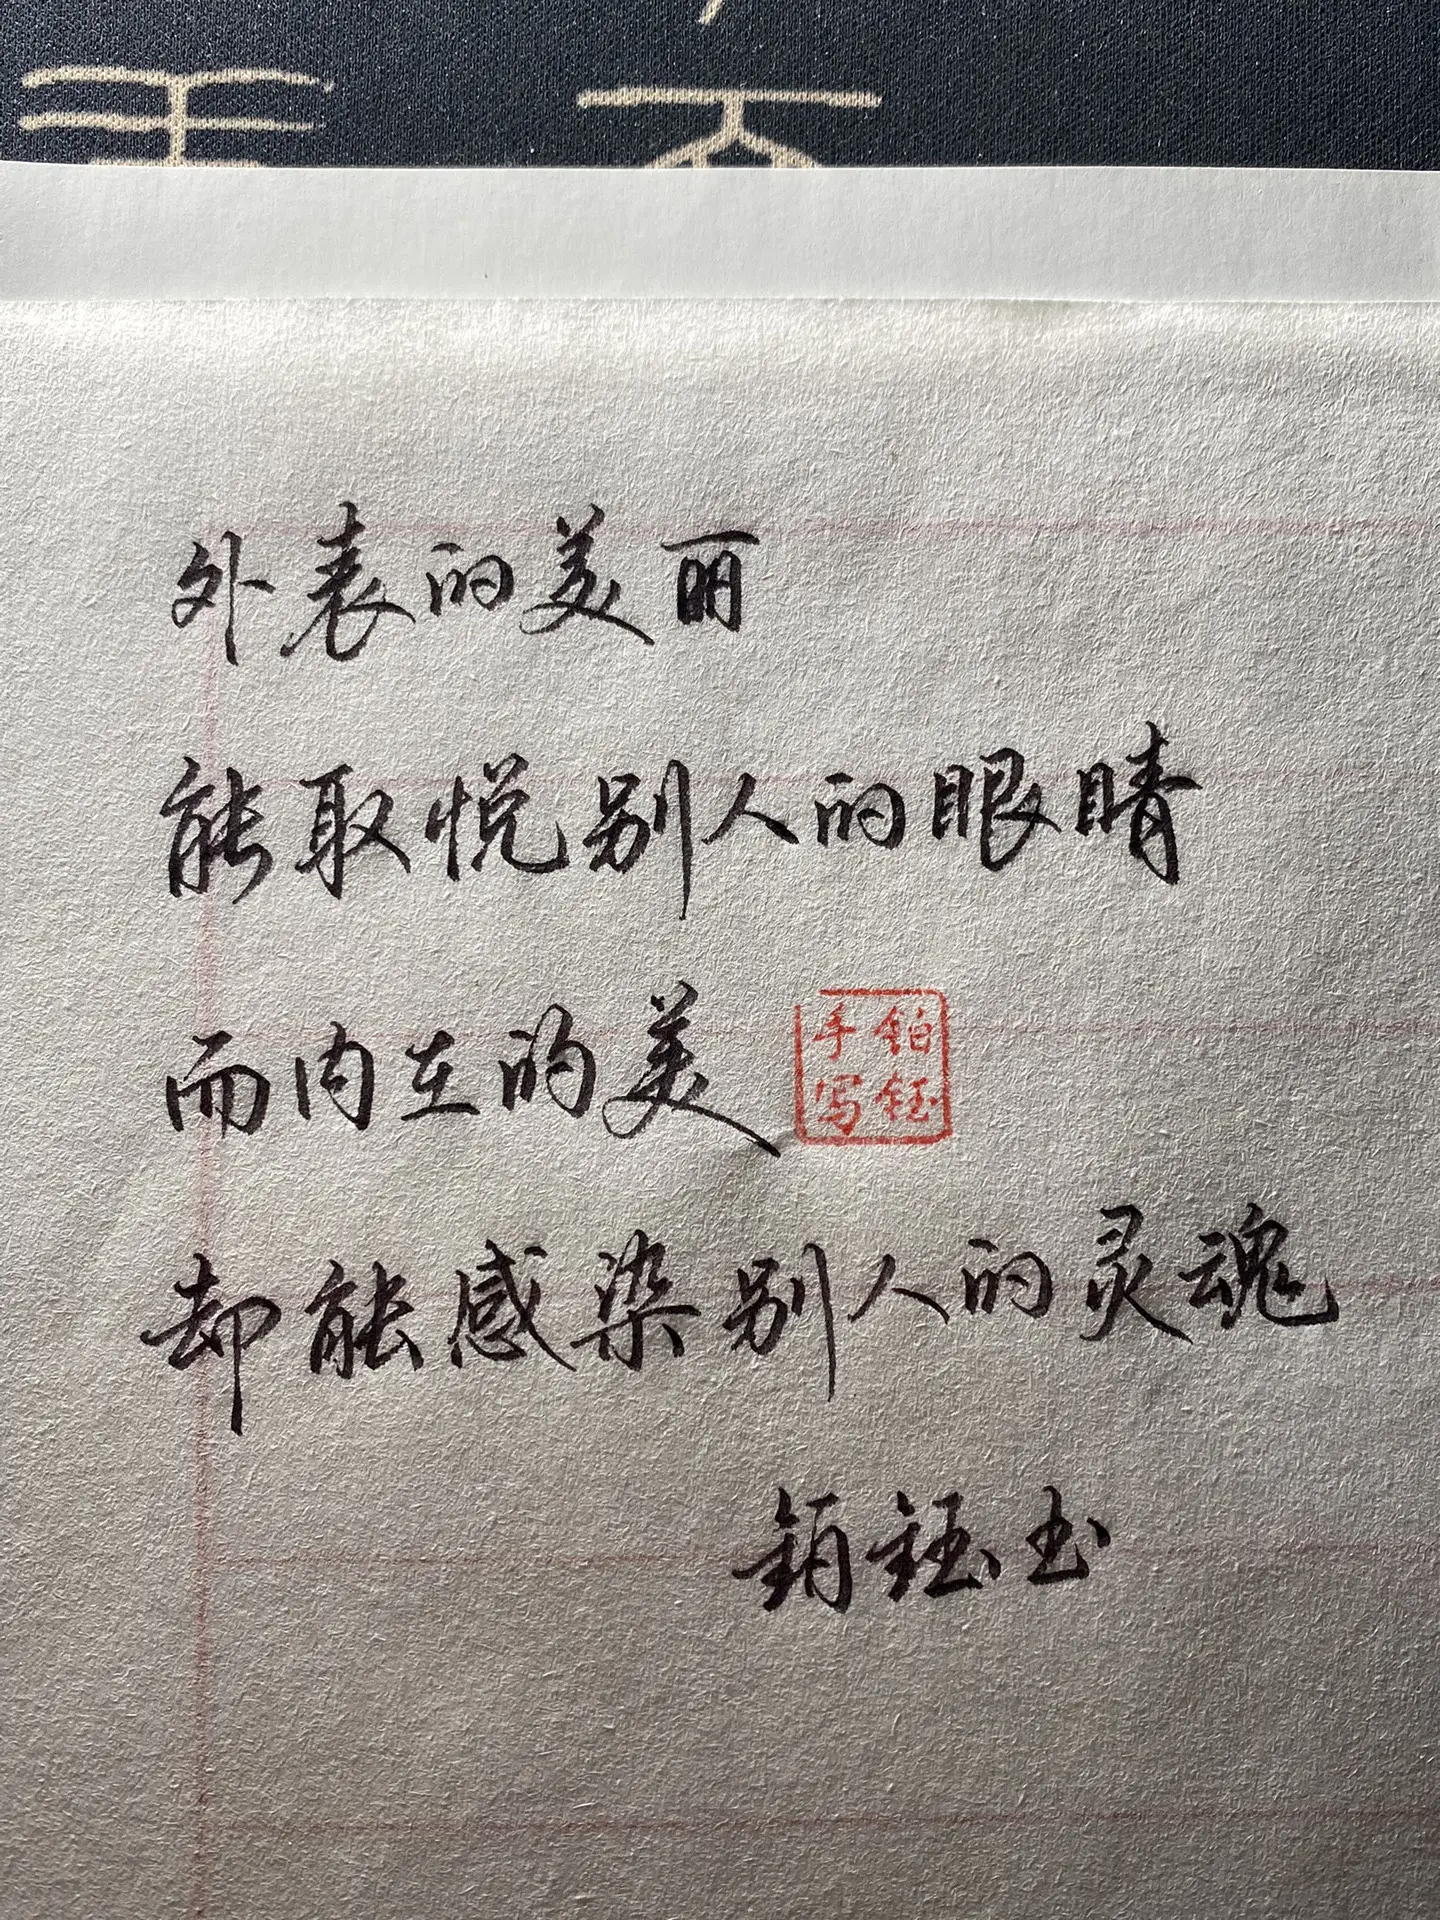 外表的美丽
能取悦别人的眼睛
而内在的美
铂钰手写
却能感染别人的灵魂
铂钰书